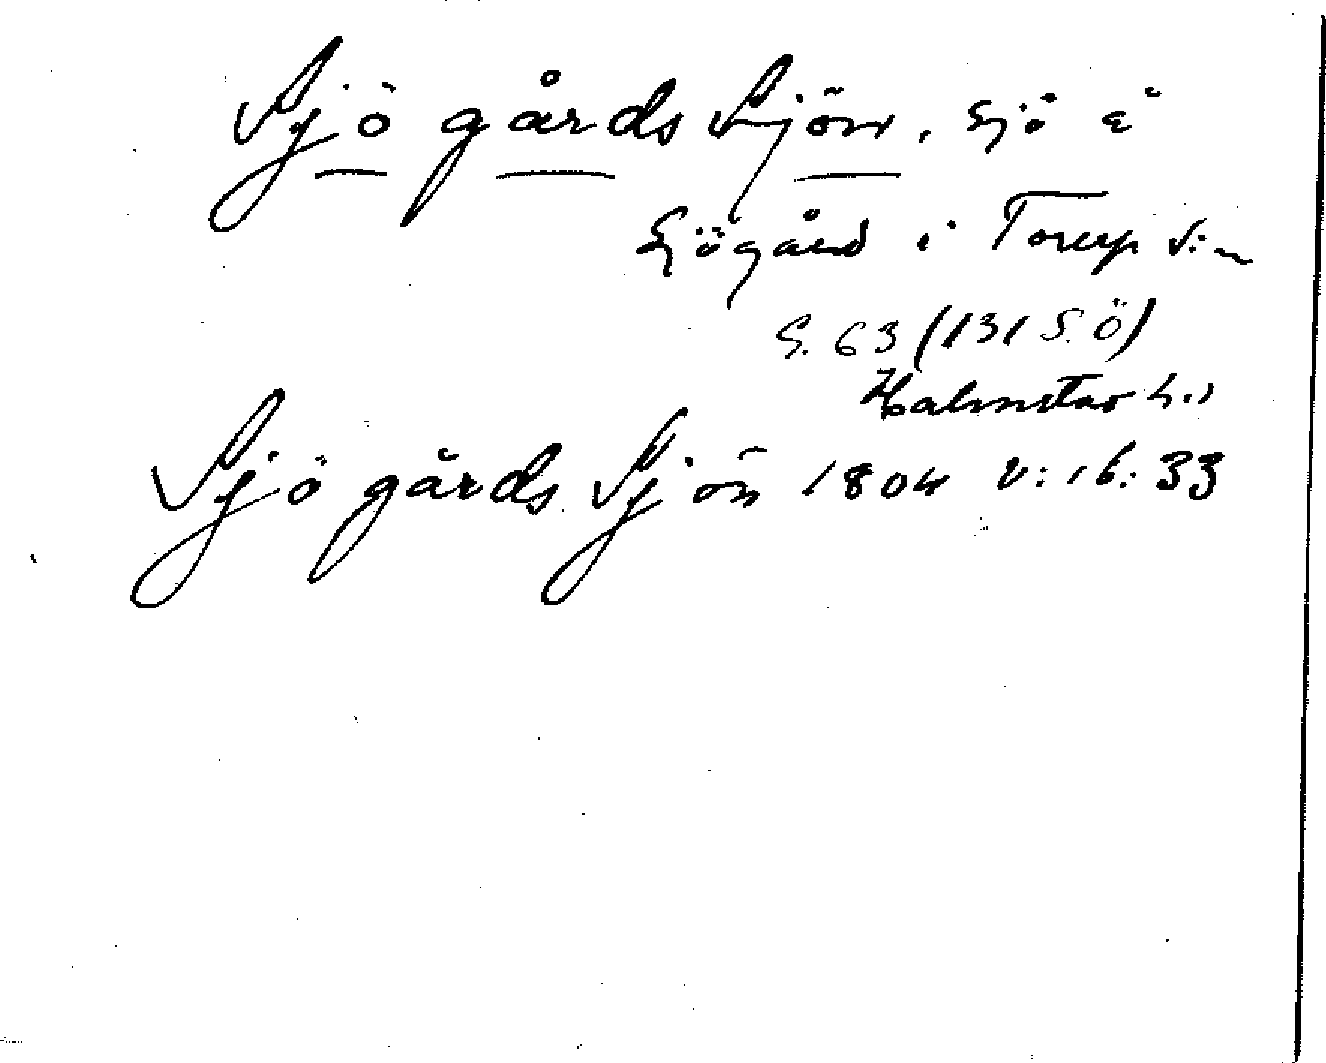 Sjögårds Sjön, sjö å
Sjögård i Torup s:n
S. 63 (131 S.Ö)
Halmstad h.
Sjögårds Sjön 1804 v: 16: 33